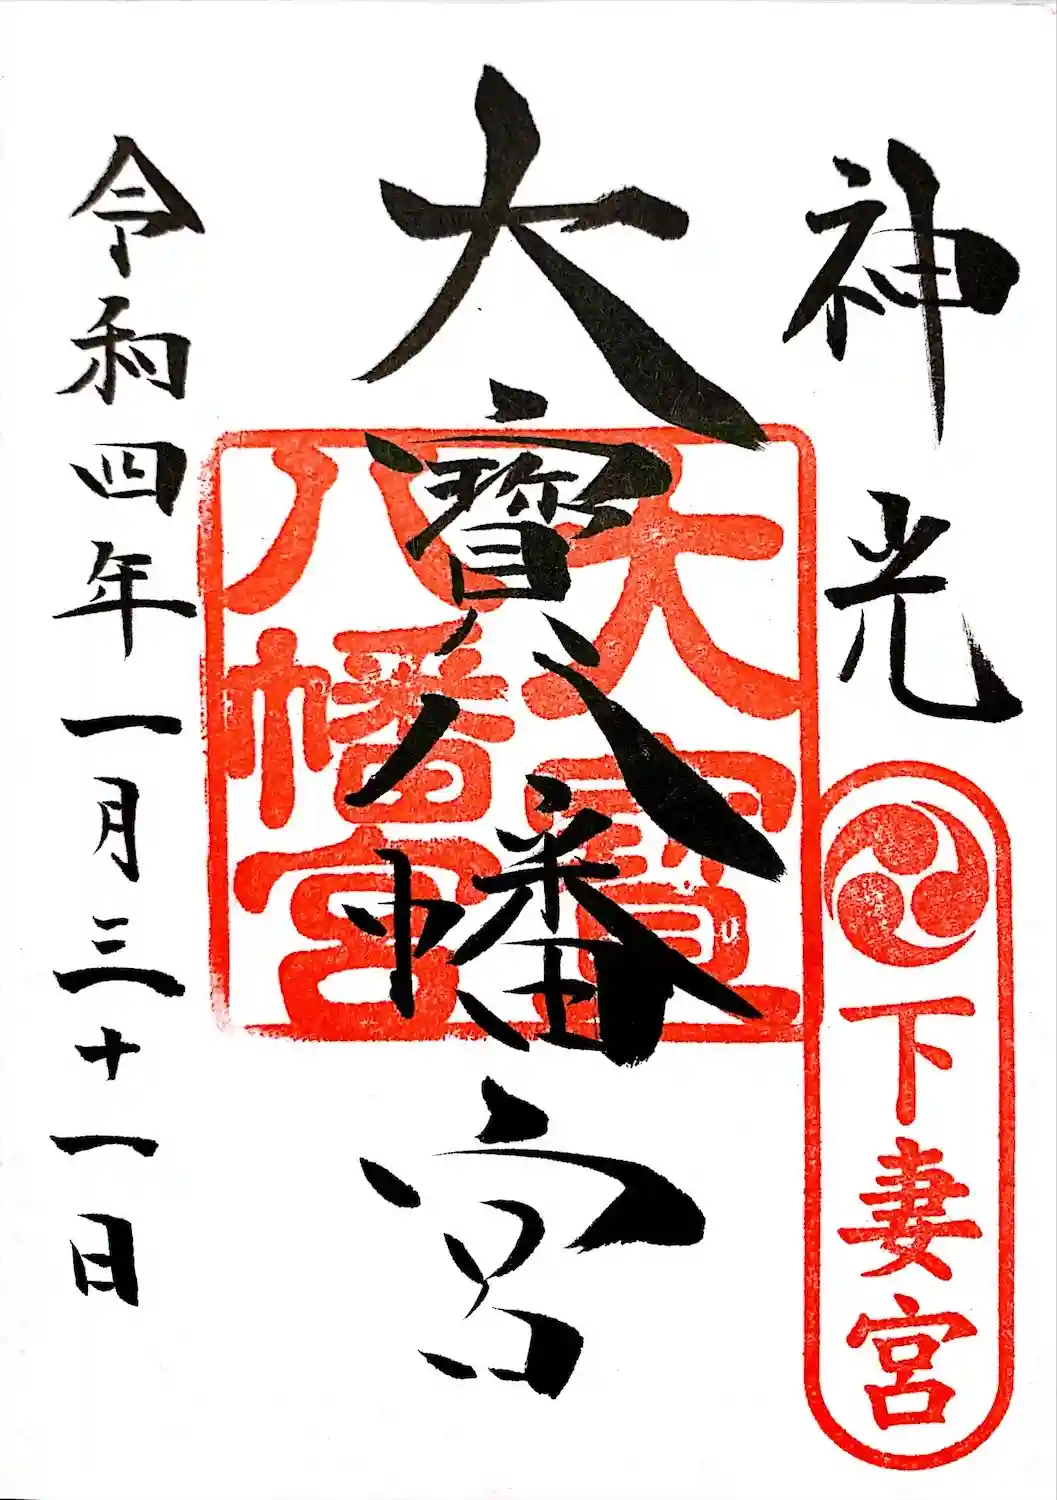 神光
下妻宮
大寳八幡宮
大寳
八幡宮
令和四年一月三十一日